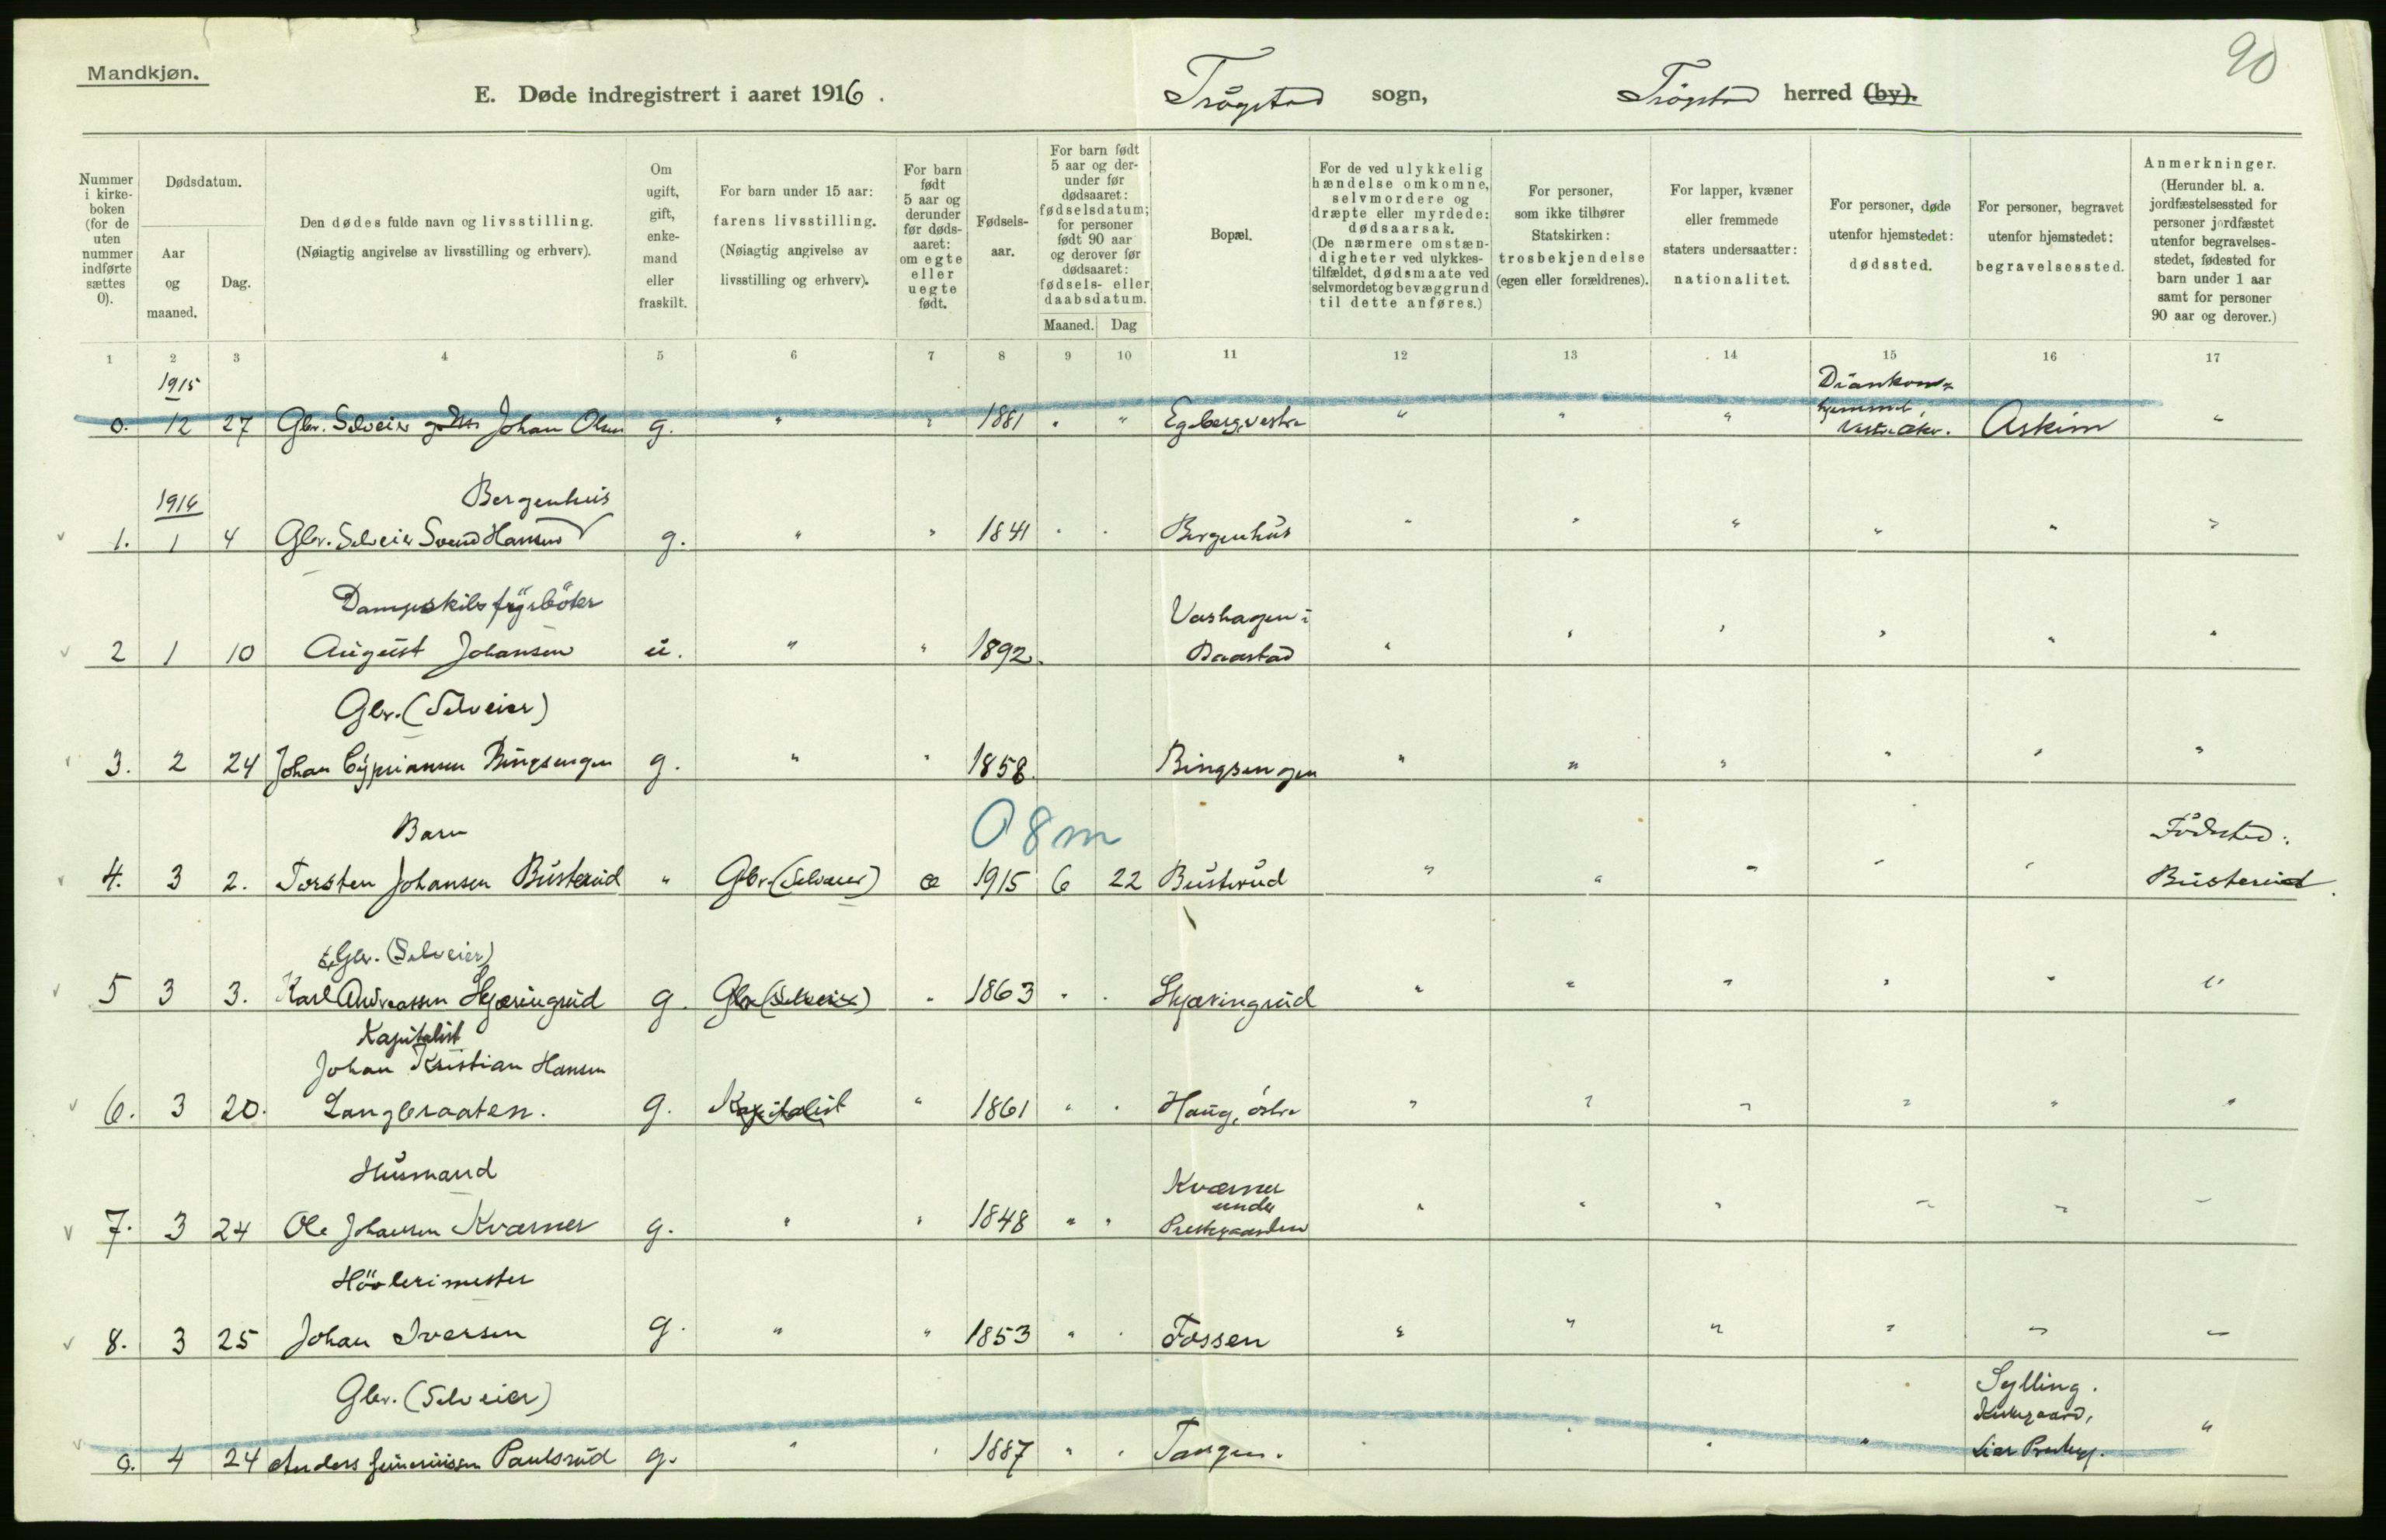 90
Mandkjøn.
E. Døde indregistrert i aaret 1916. Trögstad sogn, Trögstad herred (by).
Nummer i kirkeboken (for de uten nummer indførte sættes 0).
Dødsdatum.
Aar og maaned.
Dag.
Den dødes fulde navn og livsstilling. (Nøiagtig angivelse av livsstilling og erhverv).
Om ugift, gift, enkemand eller fraskilt.
For barn under 15 aar: farens livsstilling. (Nøiagtig angivelse av livsstilling og erhverv).
For barn født 5 aar og derunder før dødsaaret: om egte eller uegte født.
Fødselsaar.
For barn født 5 aar og derunder før dødsaaret: fødselsdatum; for personer født 90 aar og derover før dødsaaret: fødsels- eller daabsdatum.
Maaned. Dag
Bopæl.
For de ved ulykkelig hændelse omkomne, selvmordere og dræpte eller myrdede: dødsaarsak. (De nærmere omstændigheter ved ulykkestilfældet, dødsmaate ved selvmordet og bevæggrund til dette anføres.)
For personer, som ikke tilhører Statskirken: trosbekjendelse (egen eller forældrenes).
For lapper, kvæner eller fremmede staters undersaatter: nationalitet.
For personer, døde utenfor hjemstedet: dødssted.
For personer, begravet utenfor hjemstedet: begravelsessted.
Anmerkninger. (Herunder bl. a. jordfæstelsessted for personer jordfæstet utenfor begravelsesstedet, fødested for barn under 1 aar samt for personer 90 aar og derover.)
1 2 3 4 5 6 7 8 9 10 11 12 13 14 15 16 17
1915 Diankons-
0. 12 27 Gbr. Selveier Johan Olsen g. " " 1881 " " Egeberg, vestre " " " hjemmet, Vestre Aker. Askim "
1916 Bergenhus
1. 1 4 Gbr. Selveier Svend Hansen g. " " 1841 " " Bergenhus " " " " " "
Dampskibsfyrböter Vashagen i
2 1 10 August Johansen u. " " 1892. Baastad " " " " " "
Gbr. (Selveier)
3. 2 24 Johan Cypriansen Bingsengen g. " " 1858. Bingsengen " " " " " "
Barn 0 8 m Födested:
4. 3 2. Torsten Johansen Busterud " Gbr. (Selveier) æ 1915 6 22 Busterud " " " " " Busterud.
Gbr. (Selveier)
5 3 3. Karl Andreassen Skjæringrud g. Gbr (Selveier) " 1863 " " Skjæringrud " " " " " "
Kapitalist
Johan Kristian Hansen
6. 3 20. Langbraaten. g. Kapitalist " 1861 " " Haug, östre " " " " " "
Husmand Kværner
under
7. 3 24 Ole Johansen Kværner g. " " 1848 " " Prestegaarden " " " " " "
Hövlerimester
8. 3 25 Johan Iversen g. " " 1853 " " Fossen " " " " " "
Gbr. (Selveier) Sylling.
Kirkegaard,
0. 4 24 Anders Paulsrud g. " " 1887 " " Tangen. " " " " Lier "